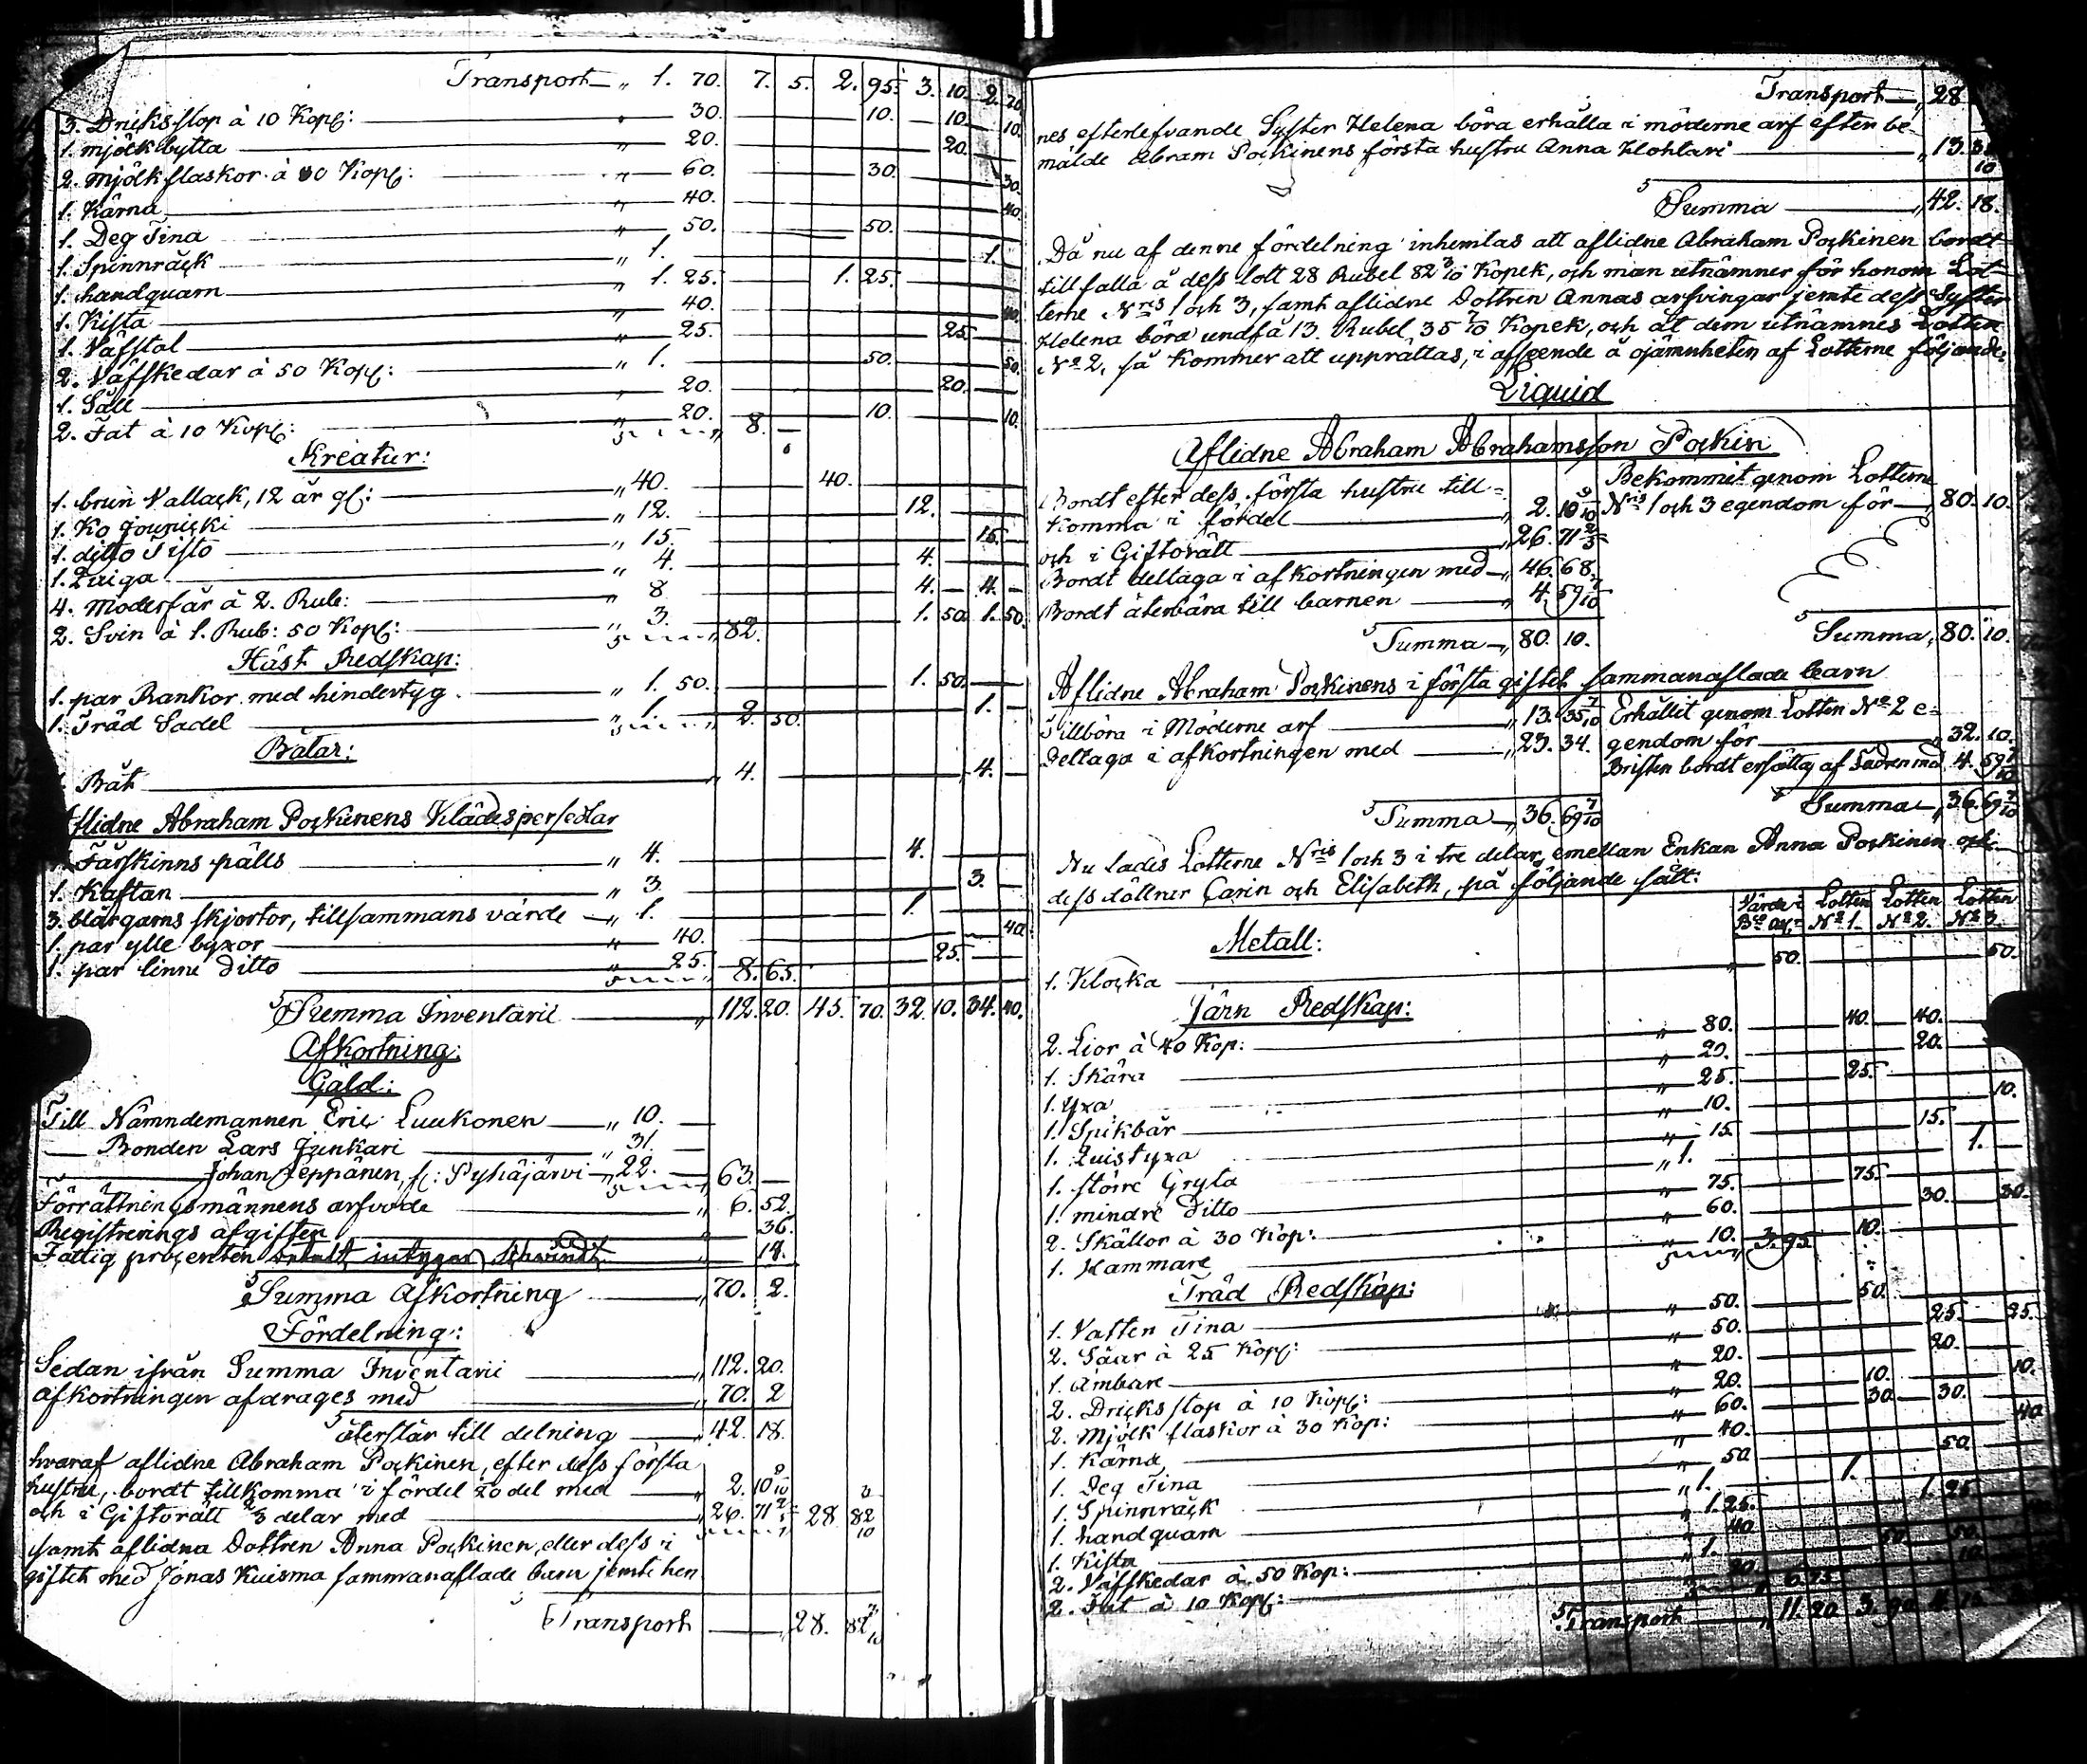 Transport „ 1. 70. 7. 5. 2. 95. 3. 10. 2. 70.
3. Dricksstop à 10 Kop: „ 30. 10. 10. 10.
1. mjölkbytta „ 20. 20.
2. mjölkflaskor à 30 Kop: „ 60. 30. 30.
1. Kärna „ 40. 40.
1. Deg Tina „ 50. 50.
1. Spinnråck „ 1. 1.
1. handquarn „ 1. 25. 1. 25.
1. Kista „ 40. 40.
1. Väfstol „ 25. 25.
2. Väfskedar à 50 Kop: „ 1. 50. 50.
1. Såll „ 20. 20.
2. Fat à 10 Kop: „ 20. 8. — 10. 10.
Kreatur:
1. brun Vallack, 12 år gl: „ 40. 40.
1. Ko Jounicki „ 12. 12.
1. ditto Tisto „ 15. 15.
1. Quiga „ 4. 4.
4. Moderfår à 2. Rub: „ 8 4. 4.
2. Svin à 1. Rub: 50 Kop: „ 3. 82. 1. 50. 1. 50.
Häst Redskap:
1. par Rankor med hindertyg „ 1. 50. 1. 50.
1. Träd Sadel „ 1. 2. 50. 1.
Båtar:
1. Båt „ 4. 4.
Aflidne Abraham Pockinens Klädespersedlar
1. Fårskinns päls „ 4. 4.
1. Kaftan „ 3. 3.
3. blårgarns skjortor, tillsammans värde „ 1. 1.
1. par ylle byxor „ 40. 40
1. par linne Ditto „ 25. 8. 65. 25.
Summa Inventarii „ 112. 20. 45. 70. 32. 10. 34. 40.
Afkortning:
Gäld:
Till Nämndemannen Eric Luukonen „ 10.
— Bonden Lars Junkari „ 31.
— Johan Jeppänen, f: Pyhäjärvi „ 22. 63.
Förrättningsmännens arfvode „ 6. 52.
Registrerings afgiften „ 36.
Fattig procenten betalt intygar Schwindt „ 18.
Summa Afkortning „ 70. 2.
Fördelning:
Sedan ifrån Summa Inventarii „ 112. 20.
afkortningen afdrages med „ 70. 2
återstår till delning „ 42. 18.
hvaraf aflidne Abraham Pockinen, efter dess första
hustru, bordt tillkomma i fördel 1/20 del med „ 2. 10 9/10
och i Giftorätt 2/3 delar med „ 26. 71 2/5 28 82 3/10
samt aflidna Dottren Anna Pockinen, eller dess i
giftet med Jonas Kuisma sammanaflade barn jemte hen
Transport „ 28. 82 3/10
Transport „ 28
nes efterlefvande Syster Helena böra erhålla i möderne arf efter be-
mälde Abram Pockinens första hustru Anna Hohtari „ 13. 35 7/10
Summa „ 42. 18.
Då nu af denne fördelning inhemtas att aflidne Abraham Pockinen bordt
tillfalla å dess lott 28 Rubel 82 3/10 Kopek, och man utnämner för honom Lot-
terne Nris 1 och 3, samt aflidne Dottren Annas arfvingar jemte dess Syster
Helena böra undfå 13. Rubel 35 7/10 Kopek, och åt dem utnämnes Lotten
No 2, så kommer att upprättas, i afseende å ojämnheten af Lotterne följande
Liquid
Aflidne Abraham Abrahamsson Pockin
Bordt efter dess första hustru till- Bekommit genom Lotterne
komma i fördel „ 2. 10 9/10 Nris 1 och 3 egendom för „ 80. 10.
och i Giftorätt „ 26. 71 2/5
Bordt deltaga i afkortningen med „ 46. 68.
Bordt återbära till barnen „ 4. 59 7/10
Summa „ 80. 10. Summa „ 80. 10.
Aflidne Abraham Pockinens i första giftet sammanaflade barn
Tillböra i Möderne arf „ 13. 35 7/10 Erhållit genom Lotten No 2 e-
Deltaga i afkortningen med „ 23. 34. gendom för „ 32. 10.
Bristen bordt ersättas af Fadren med 4. 59 7/10
Summa „ 36. 69 7/10 Summa „ 36. 69 7/10
Nu lades Lotterne Nris 1 och 3 i tre delar, emellan Enkan Anna Pockinen och
dess döttrar Carin och Elisabeth, på följande sätt:
Värde i Lotten Lotten Lotten
Bco Ass: No 1. No 2. No 3.
Metall:
1. Klocka „ 50. 50.
Järn Redskap:
2. Lior à 40 Kop: „ 80. 40. 40.
1. Skära „ 20. 20.
1. Yxa „ 25. 25.
1. Spikbår „ 10. 10.
1. Quistyxa „ 15. 15.
1. större Gryta „ 1. 1.
1. mindre Ditto „ 75. 75.
2. Skållor à 30 Kop: „ 60. 30. 30.
1. Hammare „ 10. 3. 95. 10.
Träd Redskap:
1. Vatten Tina „ 50. 50.
2. Såar à 25 Kop: „ 50. 25. 25.
1. Ämbare „ 20. 20.
2. Dricksstop à 10 Kop: „ 20. 10. 10.
2. Mjölk flaskor à 30 Kop: „ 60. 30. 30.
1. Kärna „ 40. 40
1. Deg Tina „ 50 50.
1. Spinnråck „ 1. 1.
1. handquarn „ 1. 25. 1. 25.
1. Kista „ 40
2. Väfskedar à 50 Kop: „ 1. 50. 50.
2. Fat à 10 Kop: „ 20. 10.
Transport „ 11. 20 3. 90